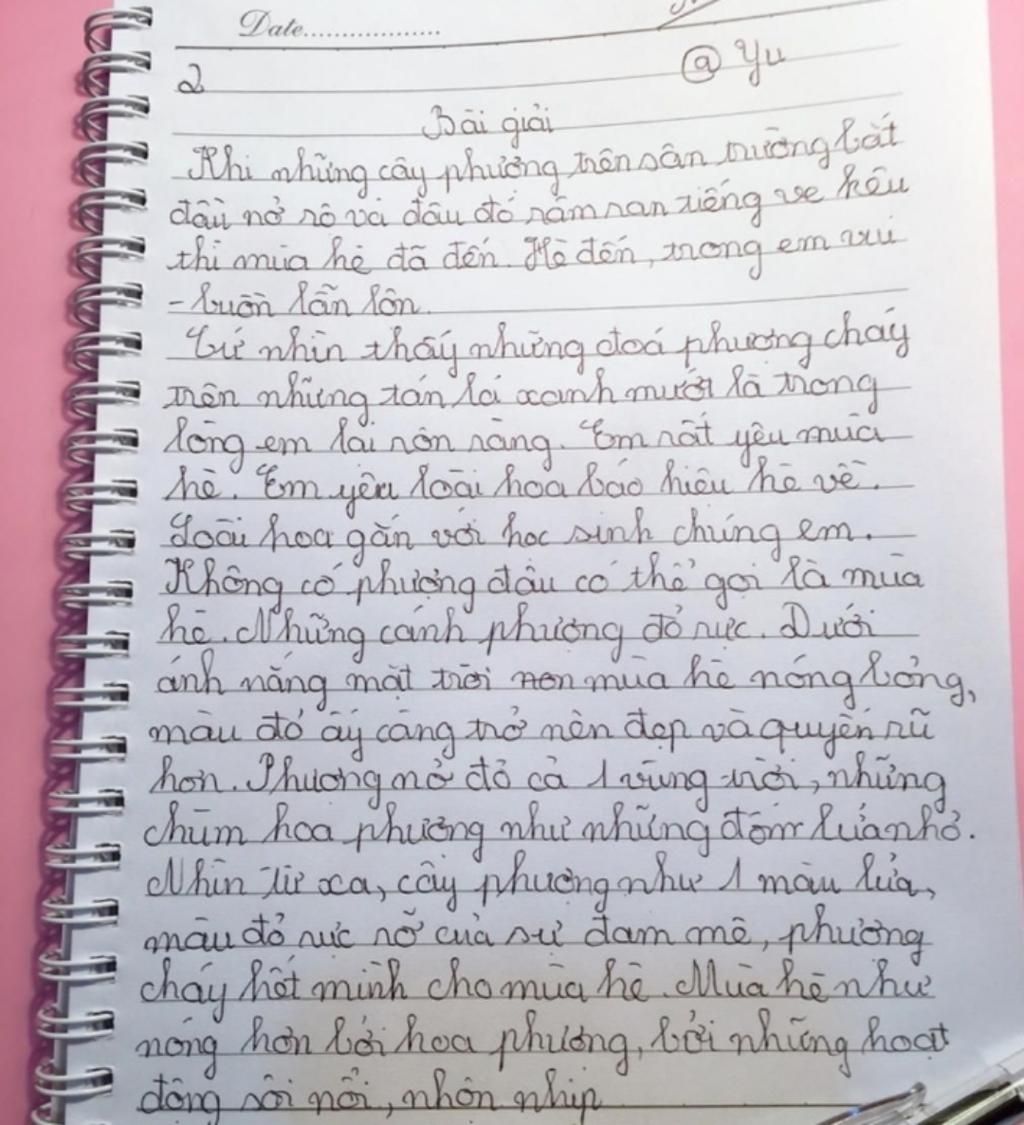 Date..................
2
@ Yu
Bài giải
Khi những cây phượng trên sân trường bắt
đầu nở rộ và đâu đó râm ran tiếng ve kêu
thì mùa hè đã đến. Hè đến, trong em vui
- buồn lẫn lộn.
Cứ nhìn thấy những đoá phượng cháy
trên những tán lá xanh mướt là trong
lòng em lại rộn ràng. Em rất yêu mùa
hè. Em yêu loài hoa báo hiệu hè về.
Loài hoa gắn với học sinh chúng em.
Không có phượng đâu có thể gọi là mùa
hè. Những cánh phượng đỏ rực. Dưới
ánh nắng mặt trời mùa hè nóng bỏng,
màu đỏ ấy càng trở nên đẹp và quyến rũ
hơn. Phượng nở đỏ cả 1 vùng trời, những
chùm hoa phượng như những đốm lửa nhỏ.
Nhìn từ xa, cây phượng như 1 màu lửa,
màu đỏ rực rỡ của sự đam mê, phượng
cháy hết mình cho mùa hè. Mùa hè như
nóng hơn bởi hoa phượng, bởi những hoạt
động sôi nổi, nhộn nhịp